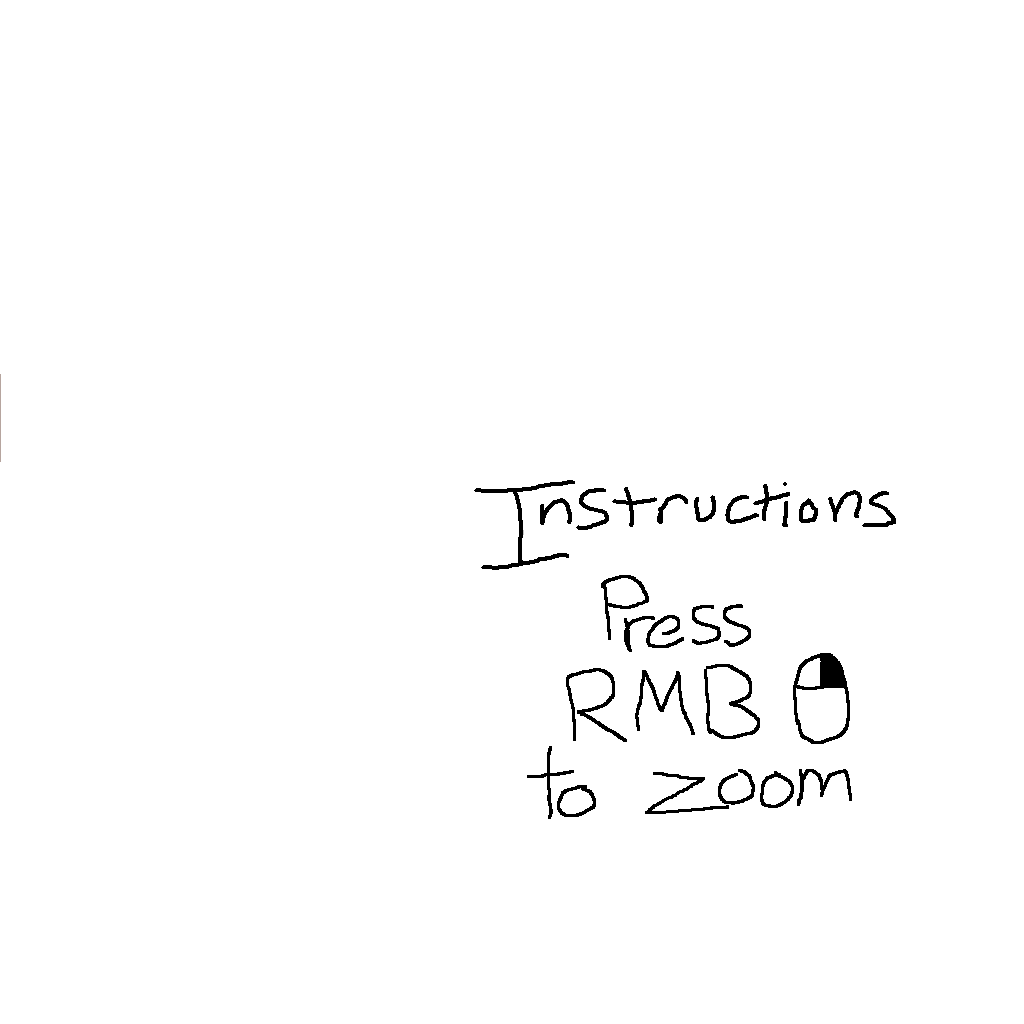 Instructions
Press
RMB
to zoom